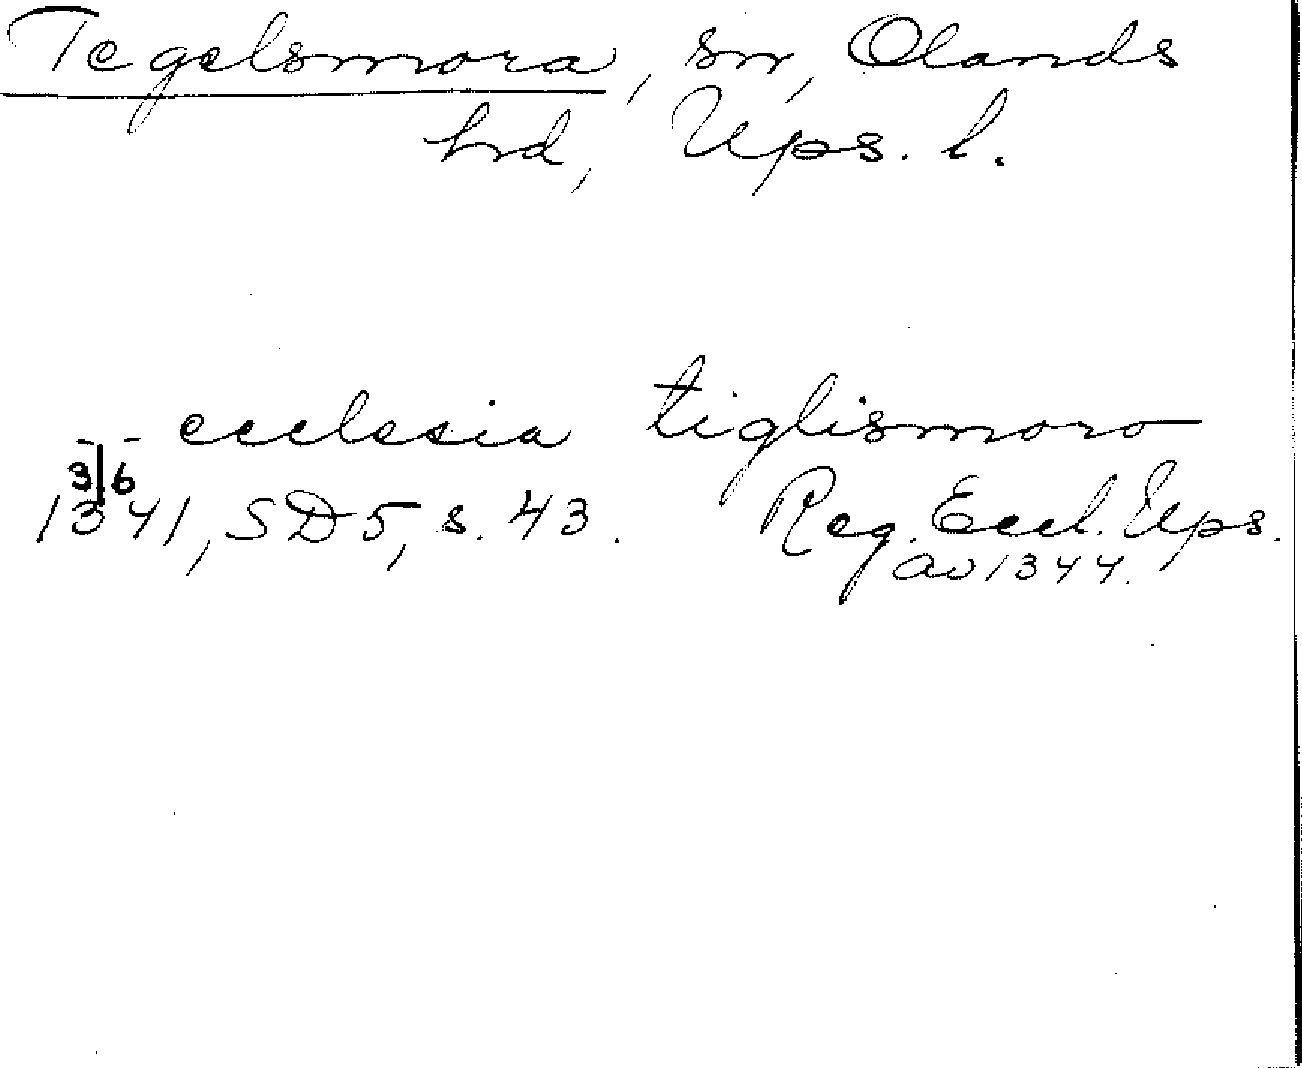 Tegelsmora, sn, Olands
hd, Ups. l.
- - ecclesia tiglismoro
3/6
1341, SD5, s. 43. Reg. Eccl. Ups.
av 1344.